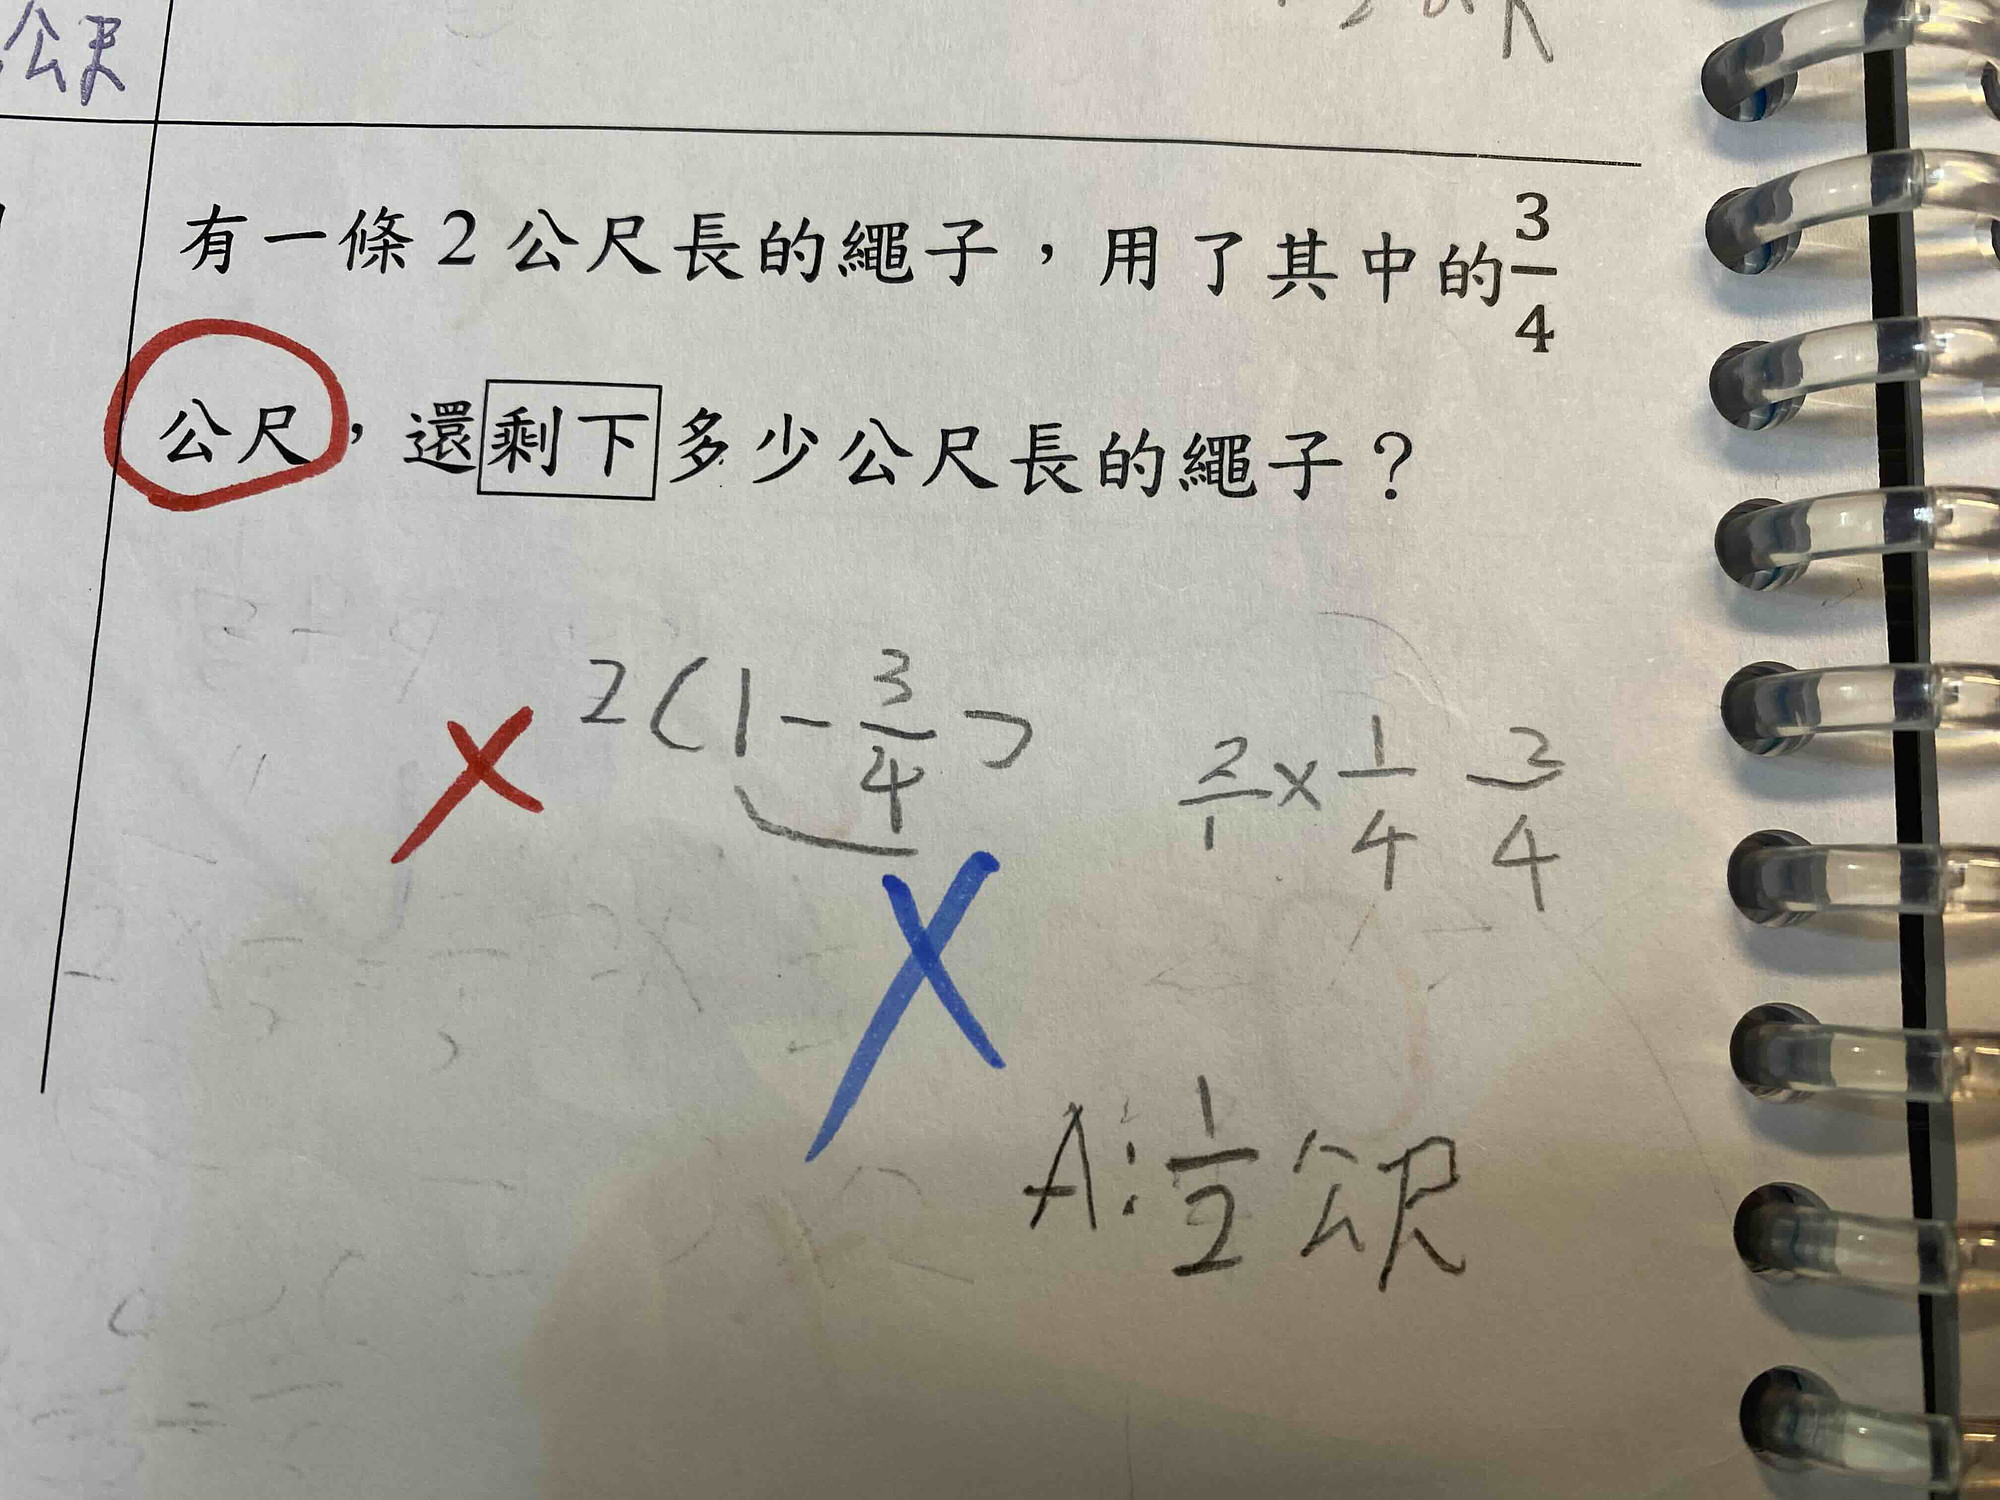 公尺
有一條2公尺長的繩子，用了其中的3/4
公尺，還剩下多少公尺長的繩子？
2(1-3/4)
2/1×1/4 3/4
A:1/2公尺